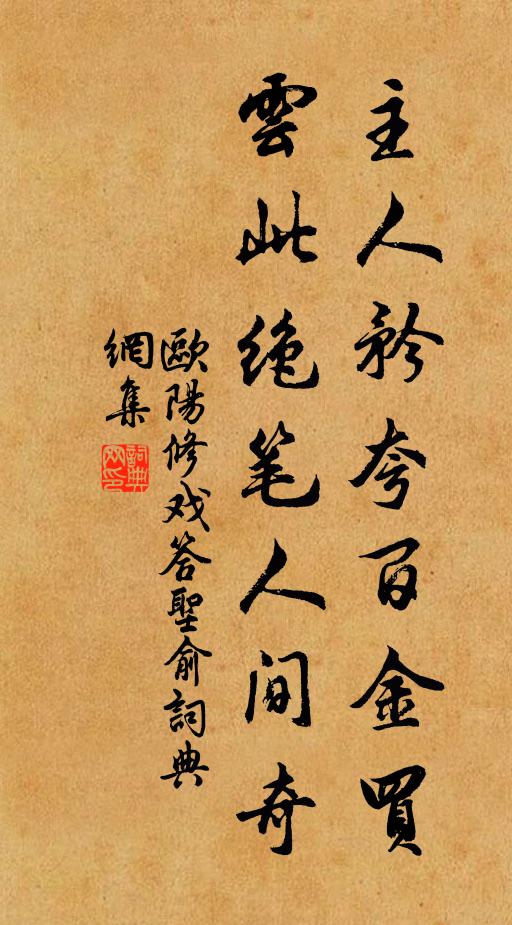 主人矜夸百金買
雲此绝笔人间奇
歐陽修戏答聖俞詞典
網集
詞典
网印